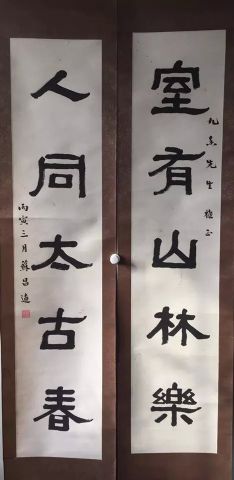 先生 雅正
室有山林樂
人同太古春
丙寅三月 蘇昌遼